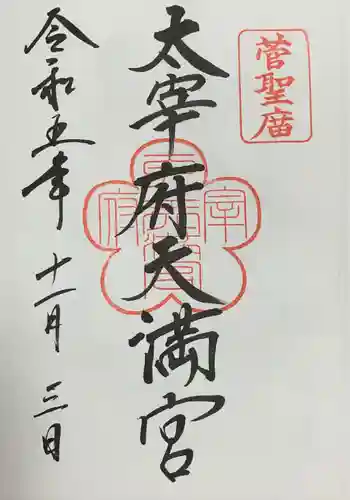 菅聖廟
太宰府天満宮
令和五年十一月三日